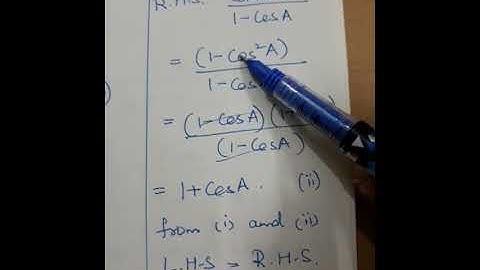 R.H.S.
1-CosA
= (1-Cos²A)
1-Cos
= (1-CosA) (1-
(1-CosA)
= 1+CosA. (ii)
from (i) and (ii)
L.H.S = R.H.S.